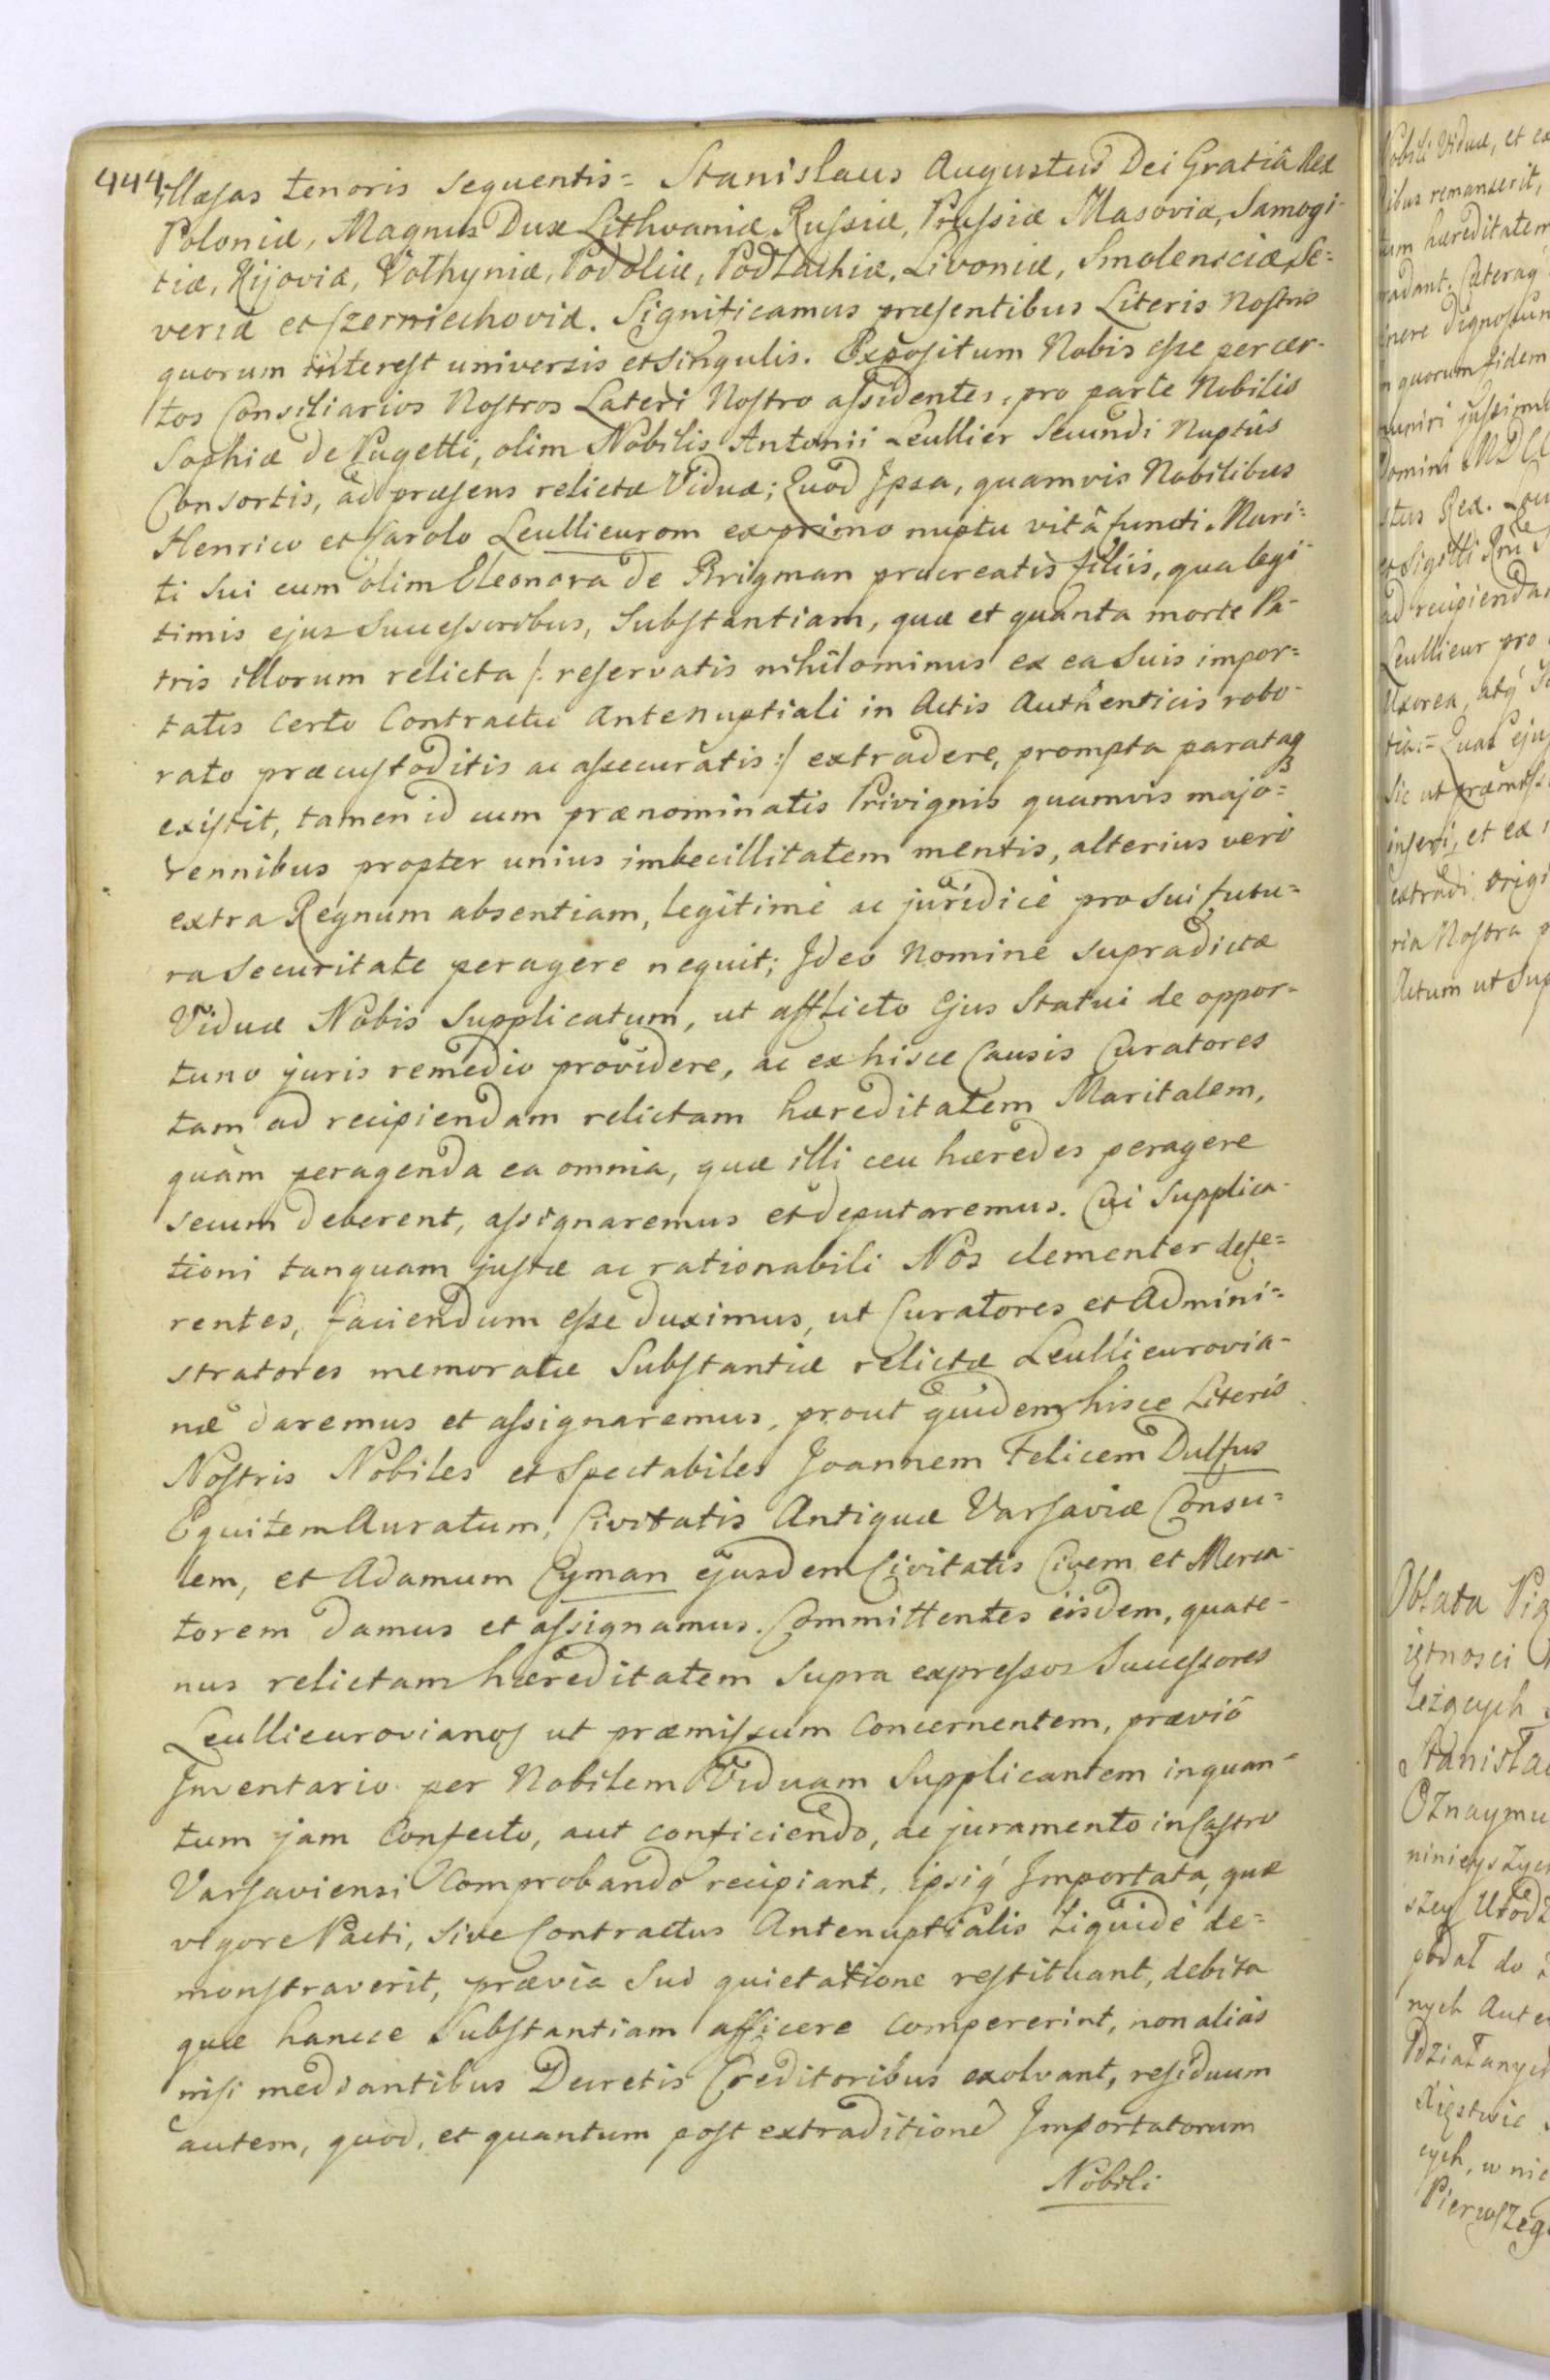 444.
illæsas tenoris sequentis = Stanislaus Augustus Dei Gratiâ Rex
Poloniæ, Magnus Dux Lithvaniæ Russiæ, Prussiæ Masoviæ, Samogi-
tiæ, Kijoviæ, Volhyniæ, Podoliæ, Podlachiæ, Livoniæ, Smolensciæ, Se=
veriæ et Czerniechoviæ. Significamus præsentibus Literis Nostris
quorum interest universis et singulis. Expositum Nobis esse per cer-
tos Consiliarios Nostros Lateri Nostro assidentes, pro parte Nobilis
Sophiæ de Pugetti, olim Nobilis Antonii Leullier Secundi Nuptûs
Consortis, ad præsens relictæ Viduæ; Quod Ipsa, quamvis Nobilibus
Henrico et Carolo Leullieurom ex primo nuptu vitâ functi Mari=
ti Sui cum olim Eleonora de Brigman procreatis filiis, qua legi-
timis ejus Successoribus, Substantiam, quæ et quanta morte Pa-
tris illorum relicta /: reservatis nihilominus ex ea Suis impor=
tatis Certo Contractu Antenuptiali in Actis Authenticis robo-
rato præcustoditis ac assecuratis :/ extradere, prompta parataq
existit, tamen id cum prænominatis Privignis quamvis majo=
rennibus propter unius imbecillitatem mentis, alterius verò
extra Regnum absentiam, legitimè ac juridicè pro Sui futu=
ra Securitate peragere nequit; Ideo Nomine Supradictæ
Viduæ Nobis Supplicatum, ut afflicto Ejus Statui de oppor-
tuno juris remedio providere, ac ex hisce Causis Curatores
tam ad recipiendam relictam hæreditatem Maritalem,
quàm peragenda ea omnia, quæ illi ceu hæredes peragere
secum deberent, assignaremus et deputaremus. Cui Supplica-
tioni tanquam justæ ac rationabili Nos clementer defe=
rentes, faciendum esse duximus, ut Curatores et Admini=
stratores memoratæ Substantiæ relictæ Leullieurovia-
næ daremus et assignaremus, prout quidem hisce Literis
Nostris Nobiles et Spectabiles Joannem Felicem Dulfus
Equitem Auratum, Civitatis Antiquæ Varsaviæ Consu=
lem, et Adamum Cyman ejusdem Civitatis Civem et Merca-
torem damus et assignamus. Committentes eisdem, quate-
nus relictam hæreditatem Supra expressos Successores
Leullieurovianos ut præmissum Concernentem, præviô
Inventario per Nobilem Viduam Supplicantem inquan-
tum jam Confecto, aut conficiendo, ac juramento in Castro
Varsaviensi Comprobando recipiant, ipsiq́ Importata, quæ
vigore Pacti, Sive Contractus Antenuptialis Liquidè de=
monstraverit, prævia Suâ quietatione restituant, debita
quæ hancce Substantiam afficere compererint, non aliàs
nisi mediantibus Decretis Creditoribus exolvant, residuum
autem, quod, et quantum post extraditione Importatorum
Nobili
Nobili Viduæ, et ex
ibus remanserit,
hæreditatem
Cæteraq́
quorum fidem
Rex.
ad recipienda
Leullieur pro
Uxorea, atq́
Quas ejus
sic ut præmiss
et ex
extradi, origi
ria Nostra p
Actum ut Sup
Oblata
iętnosci
leżących
Stanisła
Oznaymu
podał do
nych Aut
Działanych
cych, w nie
Pierwszeg